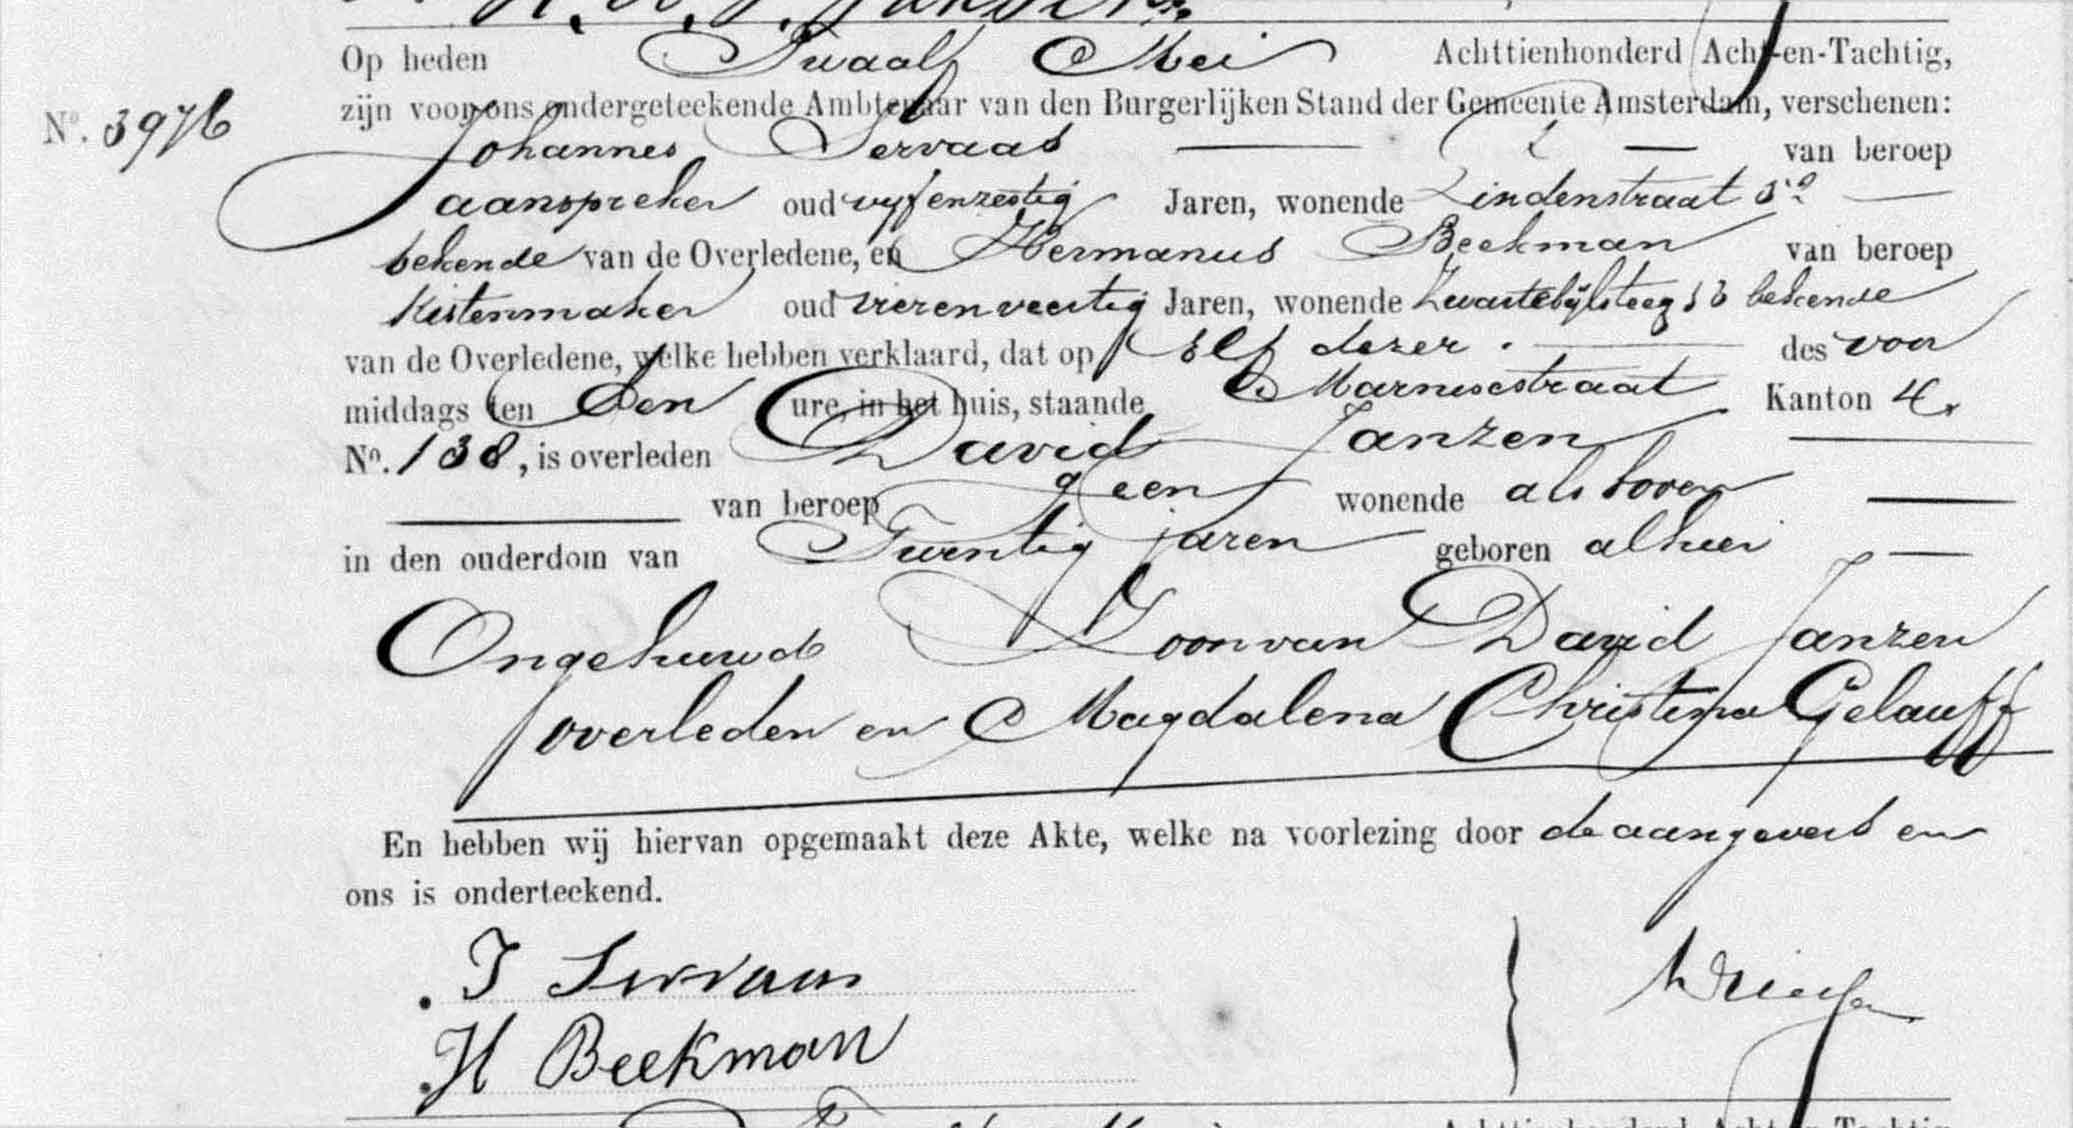 Op heden Twaalf Mei Achttienhonderd Acht-en-Tachtig,
No. 3976 zijn voor ons ondergeteekende Ambtenaar van den Burgerlijken Stand der Gemeente Amsterdam, verschenen:
Johannes Servaas van beroep
aanspreker oud vyfenzestig Jaren, wonende Lindenstraat
bekende van de Overledene, en Hermanus Beekman van beroep
Kistenmaker oud vierenveertig Jaren, wonende Zwartebijlsteeg 13 bekende
van de Overledene, welke hebben verklaard, dat op elf dezer . des voor
middags ten een ure, in het huis, staande Marnixstraat Kanton 4.
No. 138, is overleden David Janzen
van beroep geen wonende als boven
in den ouderdom van Twintig jaren geboren alhier
Ongehuwd Zoon van David Janzen
overleden en Magdalena Christina Gelauff
En hebben wij hiervan opgemaakt deze Akte, welke na voorlezing door de aangevers en
ons is onderteekend.
J Servaas
H Beekman